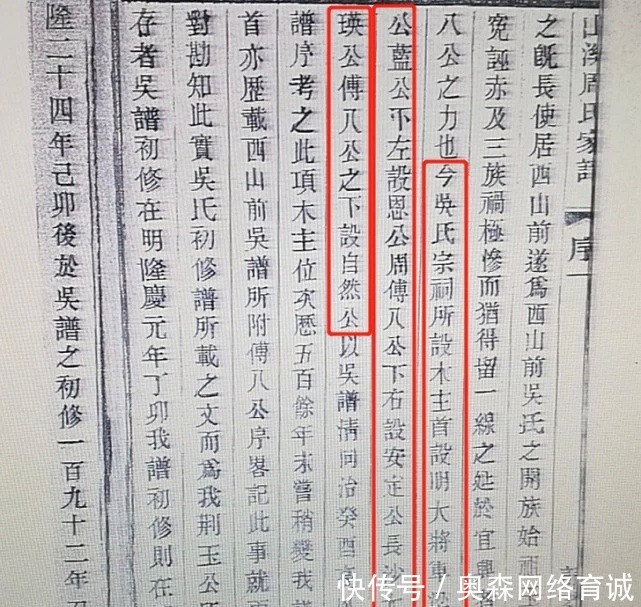 山深周氏家譜 序一
之旣長使居西山前遂爲西山前吳氏之開族始祖
寃誣赤及三族禍極慘而猶得留一線之延於宜興
八公之力也今吳氏宗祠所設木主首設明大將軍
公藍公下左設恩公周傅八公下右設安定公長沙
瑛公傅八公之下設自然公以吳譜淸同治癸酉
譜序考之此項木主位次歷五百餘年未嘗稍變我
首亦歷載西山前吳譜所附傅八公序畧記此事就
對勘知此實吳氏初修譜所載之文而爲我荆玉公
存者吳譜初修在明隆慶元年丁卯我譜初修則在
隆二十四年己卯後於吳譜之初修一百九十二年
快传号／奥森网络育诚